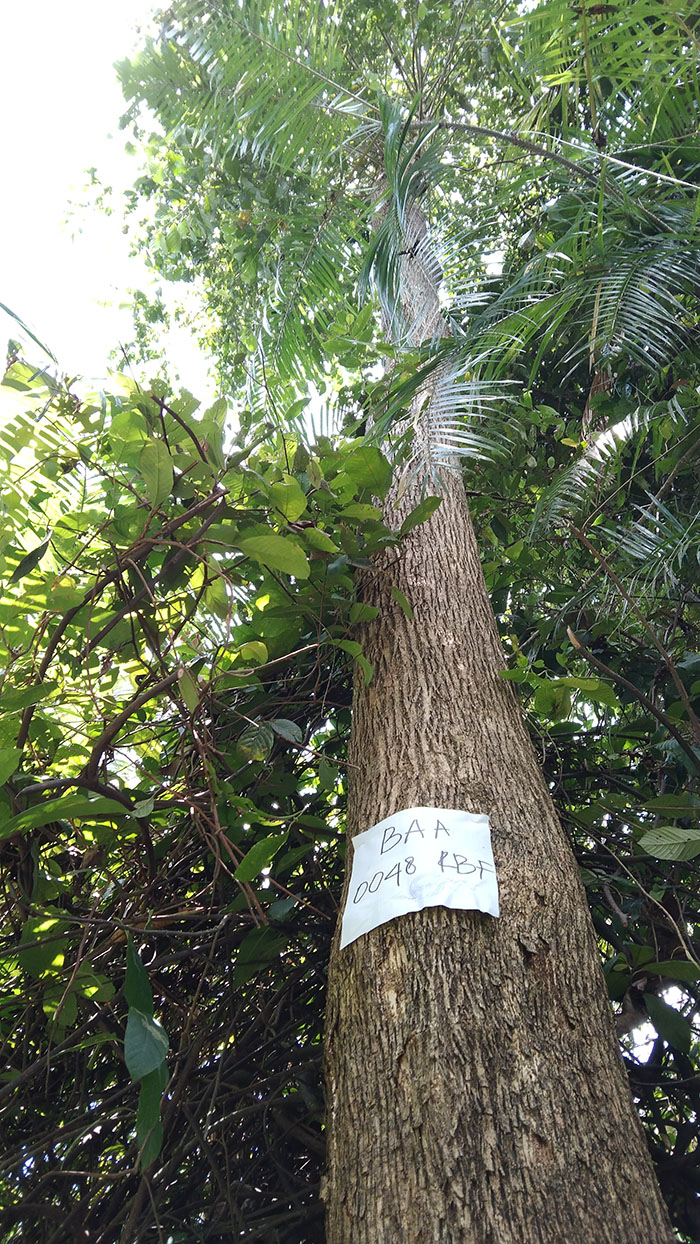 BAA
0048 RBF